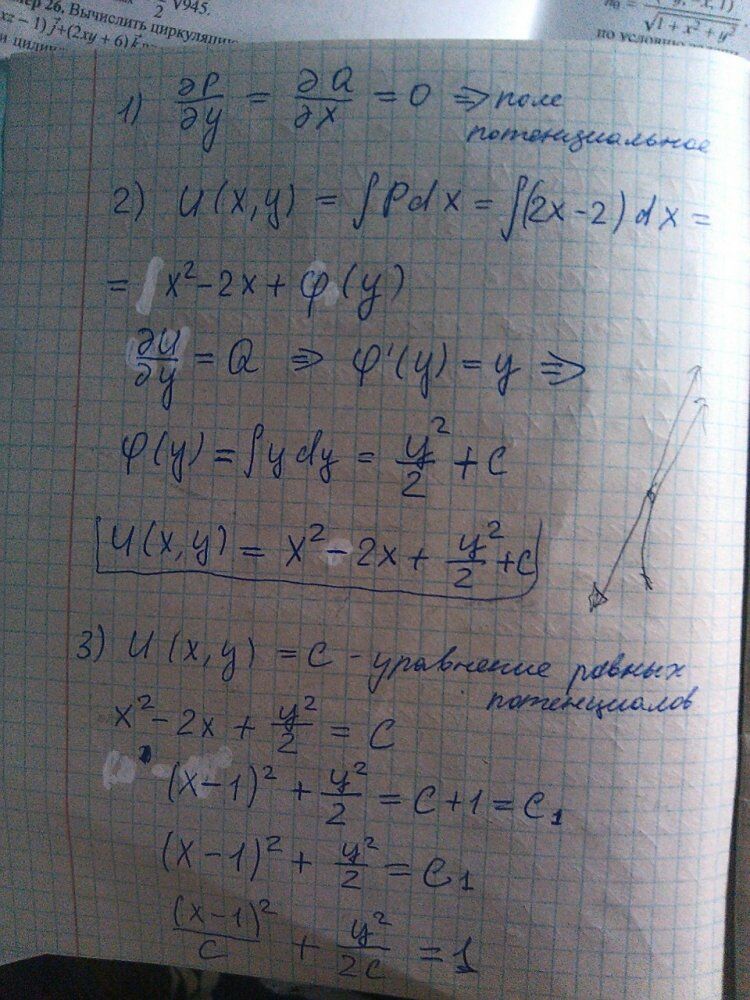 мер 26. Вычислить циркуляцию
xz − 1) j + (2xy + 6) k
√945.
√1 + x² + y²
по условию
1) ∂P/∂y = ∂Q/∂x = 0 => поле
потенциальное
2) U(x,y) = ∫Pdx = ∫(2x-2)dx =
= x² - 2x + φ(y)
∂U/∂y = Q => φ'(y) = y =>
φ(y) = ∫ydy = y²/2 + C
U(x,y) = x² - 2x + y²/2 + C
3) U(x,y) = C - уравнение равных
потенциалов
x² - 2x + y²/2 = C
(x-1)² + y²/2 = C+1 = C₁
(x-1)² + y²/2 = C₁
(x-1)²/C + y²/2C = 1